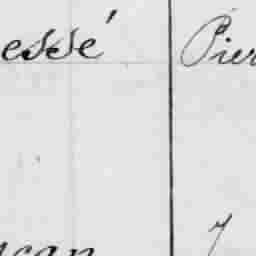 essé Pier
scan 7